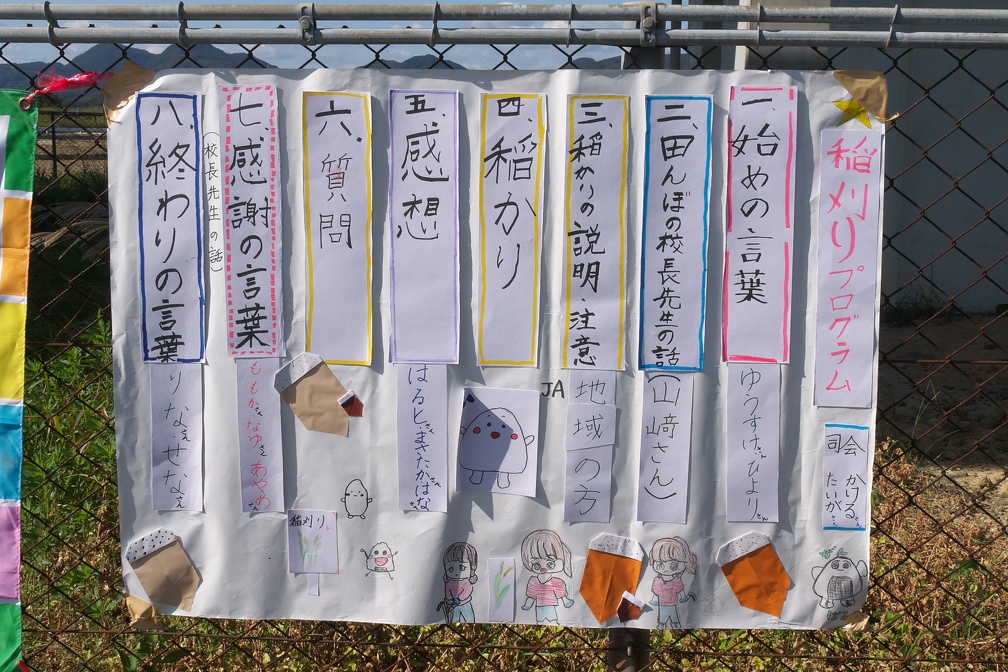 稲刈りプログラム
司会
かける
たいが
一、始めの言葉
ゆうすけさん ひよりさん
二、田んぼの校長先生の話
(山﨑さん)
三、稲かりの説明・注意
JA
地域の方
四、稲かり
五、感想
はるとさん まさたかさん はな
六、質問
稲刈り
七、感謝の言葉
ももかさん なゆさん あやめ
(校長先生の話)
八、終わりの言葉
りなさん・せなさん